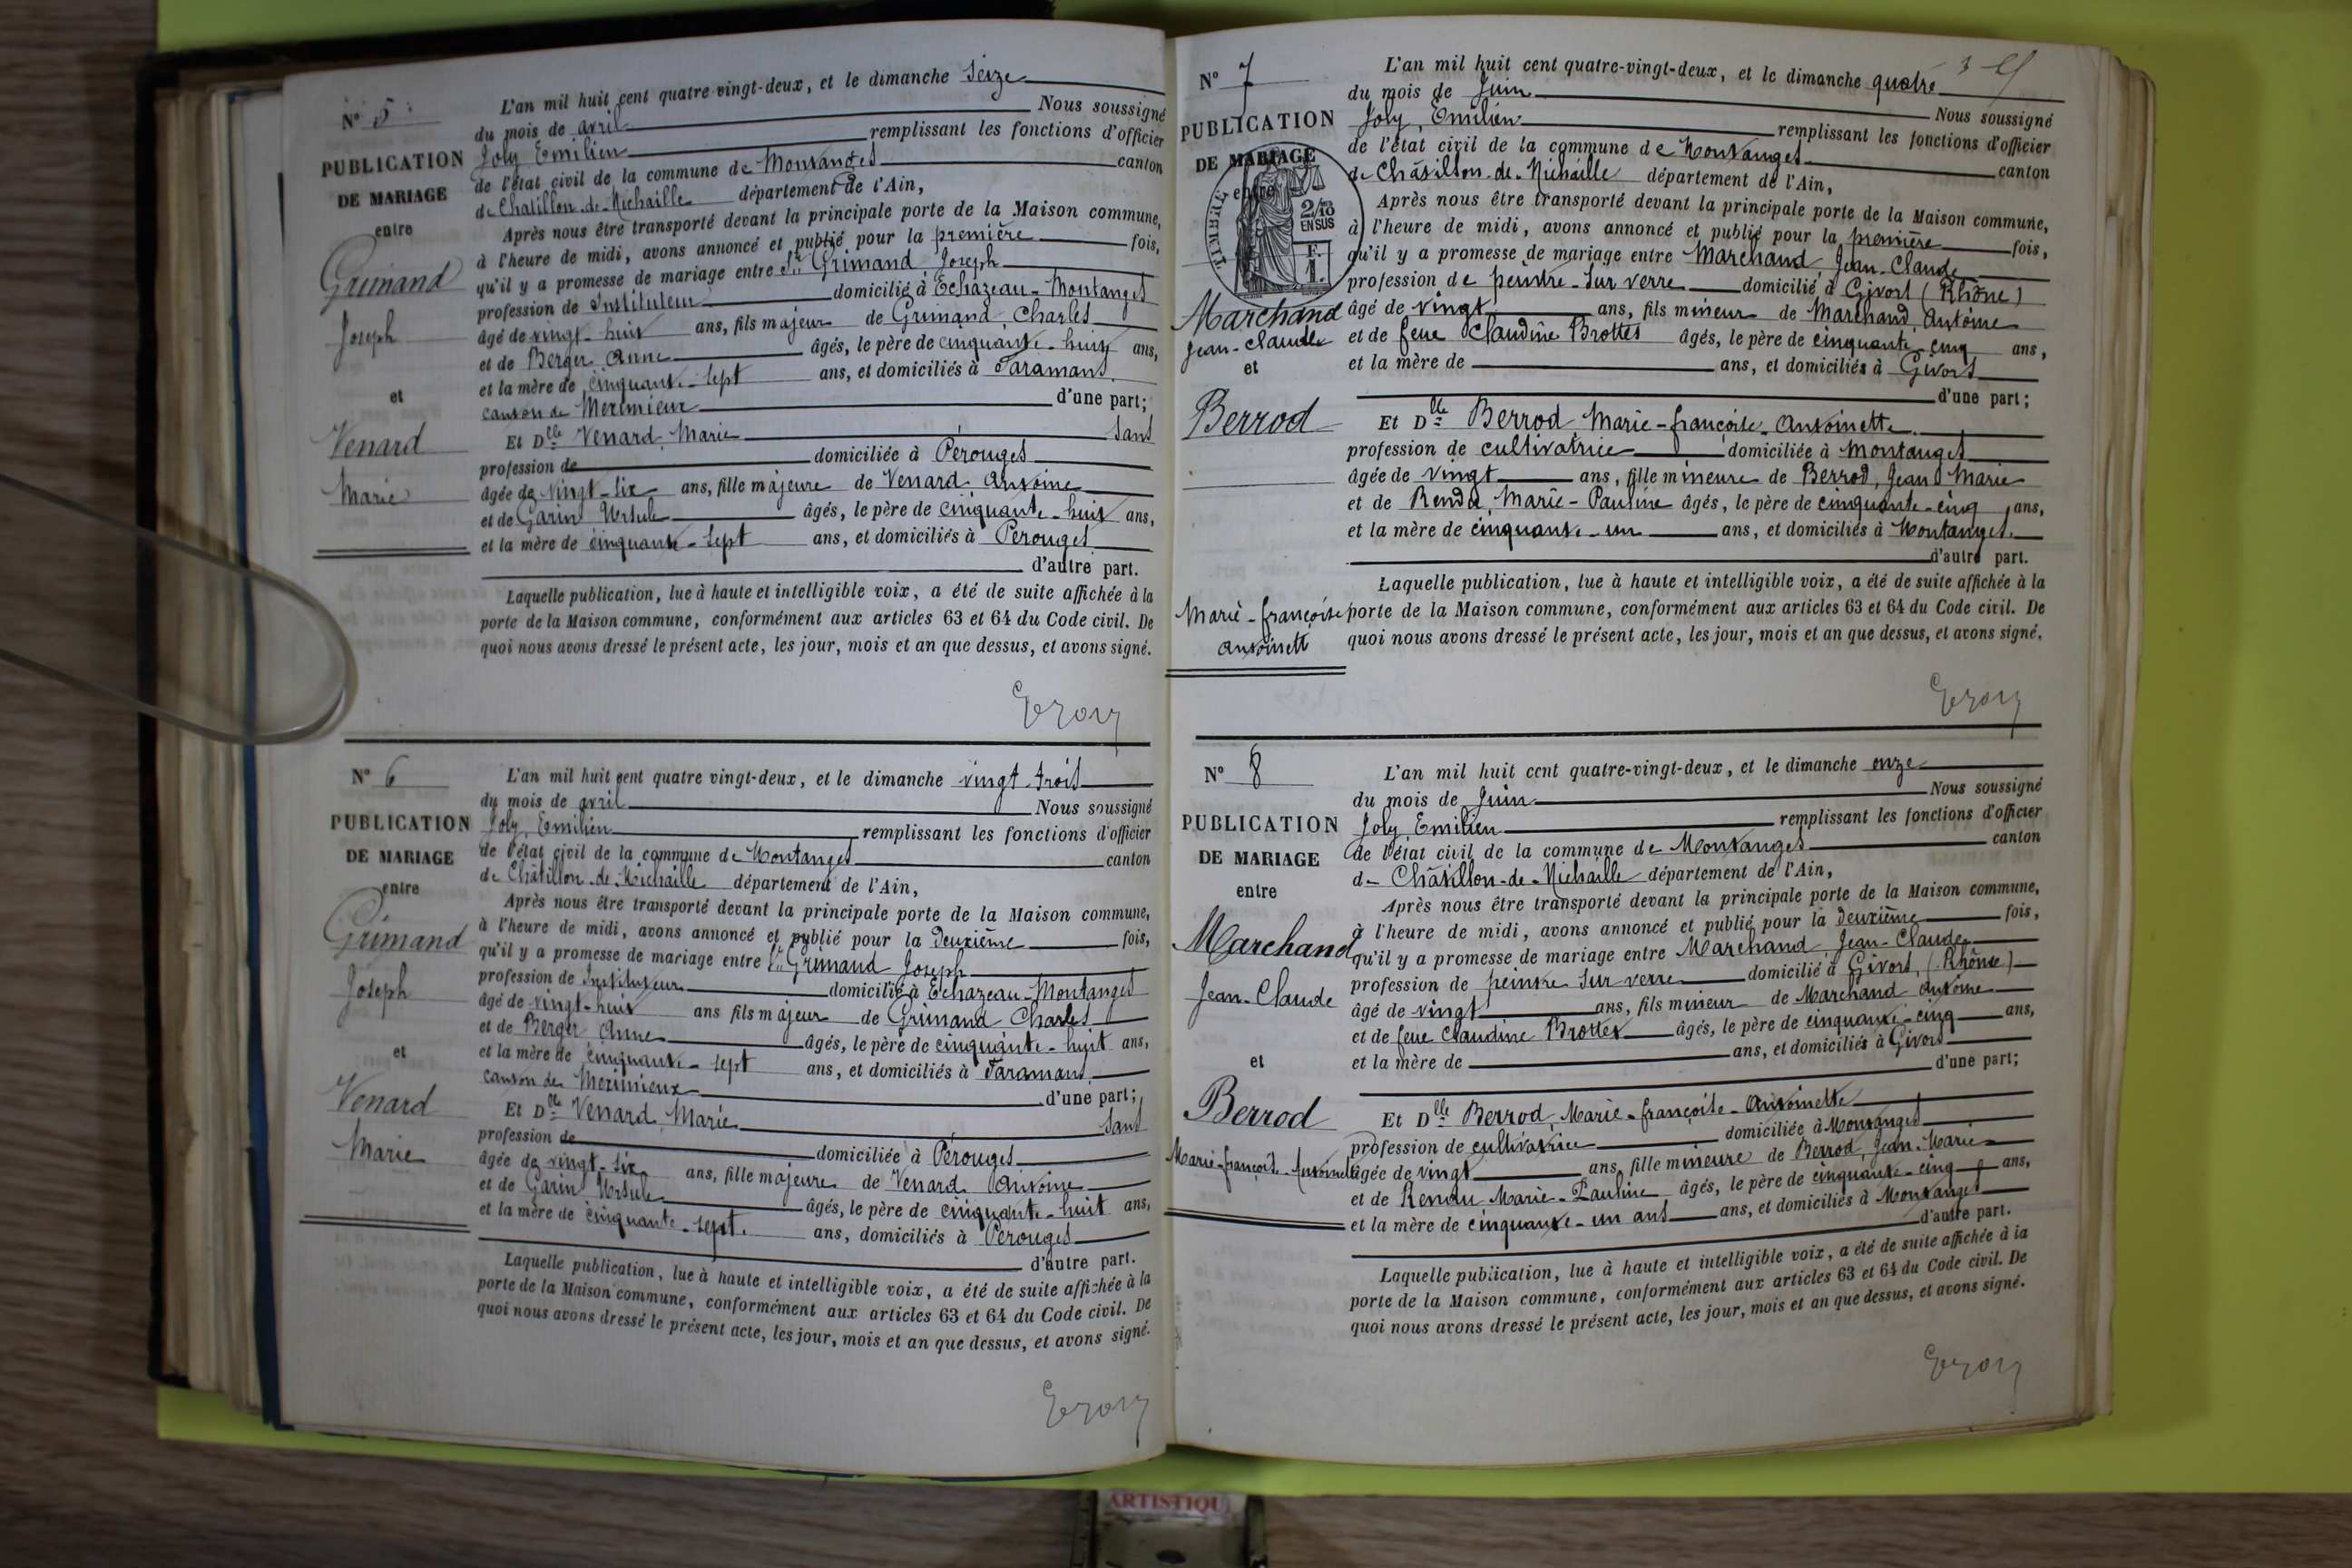 N° 5
PUBLICATION
DE MARIAGE
entre
Grimand
Joseph
et
Venard
Marie
L'an mil huit cent quatre-vingt-deux, et le dimanche seize
du mois de avril Nous soussigné
Joly Emilien remplissant les fonctions d'officier
de l'état civil de la commune de Montanges canton
de Chatillon-de-Michaille département de l'Ain,
Après nous être transporté devant la principale porte de la Maison commune,
à l'heure de midi, avons annoncé et publié pour la première fois,
qu'il y a promesse de mariage entre Sr Grimand Joseph
profession de Instituteur domicilié à Echazeau-Montanges
âgé de vingt-huit ans, fils majeur de Grimand, Charles
et de Berger Anne âgés, le père de cinquante-huit ans,
et la mère de cinquante-sept ans, et domiciliés à Faramans
canton de Meximieux d'une part;
Et Dlle Venard Marie sans
profession de domiciliée à Pérouges
âgée de vingt-six ans, fille majeure de Venard Antoine
et de Garin Ursule âgés, le père de cinquante-huit ans,
et la mère de cinquante-sept ans, et domiciliés à Pérouges
d'autre part.
Laquelle publication, lue à haute et intelligible voix, a été de suite affichée à la
porte de la Maison commune, conformément aux articles 63 et 64 du Code civil. De
quoi nous avons dressé le présent acte, les jour, mois et an que dessus, et avons signé.
N° 6
PUBLICATION
DE MARIAGE
entre
Grimand
Joseph
et
Venard
Marie
L'an mil huit cent quatre vingt-deux, et le dimanche vingt-trois
du mois de avril Nous soussigné
Joly, Emilien remplissant les fonctions d'officier
de l'état civil de la commune de Montanges canton
de Châtillon-de-Michaille département de l'Ain,
Après nous être transporté devant la principale porte de la Maison commune,
à l'heure de midi, avons annoncé et publié pour la deuxième fois,
qu'il y a promesse de mariage entre Sr Grimand Joseph
profession de Instituteur domicilié à Echazeau-Montanges
âgé de vingt-huit ans fils majeur de Grimand Charles
et de Berger Anne âgés, le père de cinquante-huit ans,
et la mère de cinquante-sept ans, et domiciliés à Faramans
canton de Meximieux d'une part;
Et Dlle Venard Marie sans
profession de domiciliée à Pérouges
âgée de vingt-six ans, fille majeure de Venard Antoine
et de Garin Ursule âgés, le père de cinquante-huit ans,
et la mère de cinquante-sept. ans, domiciliés à Pérouges
d'autre part.
Laquelle publication, lue à haute et intelligible voix, a été de suite affichée à la
porte de la Maison commune, conformément aux articles 63 et 64 du Code civil. De
quoi nous avons dressé le présent acte, les jour, mois et an que dessus, et avons signé.
N° 7
PUBLICATION
DE MARIAGE
entre
TIMBRE
2/10
EN SUS
Marchand
Jean-Claude
et
Berrod
Marie-françoise
Antoinett
L'an mil huit cent quatre-vingt-deux, et le dimanche quatre
du mois de Juin Nous soussigné
Joly, Emilien remplissant les fonctions d'officier
de l'état civil de la commune de Montanges canton
de Châtillon-de-Michaille département de l'Ain,
Après nous être transporté devant la principale porte de la Maison commune,
à l'heure de midi, avons annoncé et publié pour la première fois,
qu'il y a promesse de mariage entre Marchand, Jean-Claude
profession de peintre-sur verre domicilié à Givors (Rhône)
âgé de vingt ans, fils mineur de Marchand, Antoine
et de feue Claudine Brottes âgés, le père de cinquante-cinq ans,
et la mère de ans, et domiciliés à Givors
d'une part;
Et Dlle Berrod, Marie-françoise-Antoinette
profession de cultivatrice domiciliée à Montanges
âgée de vingt ans, fille mineure de Berrod, Jean Marie
et de Rendu, Marie-Pauline âgés, le père de cinquante-cinq ans,
et la mère de cinquante-un ans, et domiciliés à Montanges.
d'autre part.
Laquelle publication, lue à haute et intelligible voix, a été de suite affichée à la
porte de la Maison commune, conformément aux articles 63 et 64 du Code civil. De
quoi nous avons dressé le présent acte, les jour, mois et an que dessus, et avons signé.
N° 8
PUBLICATION
DE MARIAGE
entre
Marchand
Jean-Claude
et
Berrod
Marie-françoise-Antoinette
L'an mil huit cent quatre-vingt-deux, et le dimanche onze
du mois de Juin Nous soussigné
Joly, Emilien remplissant les fonctions d'officier
de l'état civil de la commune de Montanges canton
de Châtillon-de-Michaille département de l'Ain,
Après nous être transporté devant la principale porte de la Maison commune,
à l'heure de midi, avons annoncé et publié pour la deuxième fois,
qu'il y a promesse de mariage entre Marchand, Jean-Claude
profession de peintre sur verre domicilié à Givors, (Rhône)
âgé de vingt ans, fils mineur de Marchand Antoine
et de feue Claudine Brottes âgés, le père de cinquante-cinq ans,
et la mère de ans, et domiciliés à Givors
d'une part;
Et Dlle Berrod, Marie-françoise-Antoinette
profession de cultivatrice domiciliée à Montanges
âgée de vingt ans, fille mineure de Berrod, Jean-Marie
et de Rendu Marie-Pauline âgés, le père de cinquante-cinq ans,
et la mère de cinquante-un ans ans, et domiciliés à Montanges
d'autre part.
Laquelle publication, lue à haute et intelligible voix, a été de suite affichée à la
porte de la Maison commune, conformément aux articles 63 et 64 du Code civil. De
quoi nous avons dressé le présent acte, les jour, mois et an que dessus, et avons signé.
ARTISTIQU